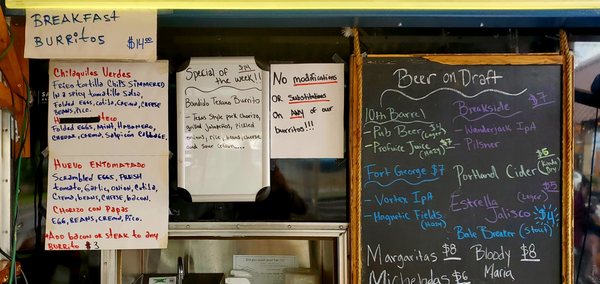 BREAKFAST
BURRITOS $14.50
Chilaquiles Verdes
Fried tortilla chips simmered
in a spicy tomatillo salsa,
folded eggs, cotija, crema, cheese
beans, pico.
Folded eggs, mint, habanero,
crema, and crema, salpicon cabbage.
Huevo Entomatado
Scrambled eggs, fresh
tomato, garlic, onion, cotija,
crema, beans, cheese, bacon.
Chorizo con Papas
Egg, beans, crema, pico.
*Add bacon or steak to any
burrito $3
Special of $14
the week!!
Bandido Texano Burrito
- Texas style pork chorizo,
grilled jalapeños, pickled
onions, rice, beans, cheese
and sour cream...
No modifications
OR substitutions
on Any of our
burritos!!!
Beer on Draft
10th Barrel
- Pub Beer $4 (Lager)
- Profuse Juice $7 (Hazy)
Fort George $7
- Vortex IPA
- Magnetic Fields (Hazy)
Breakside $7
- Wanderjack IPA
- Pilsner
Portland Cider $5
Estrella Jalisco $5 (Lager)
Bale Breaker $4 (Stout)
Margaritas $8
Micheladas $6
Bloody $8
Maria